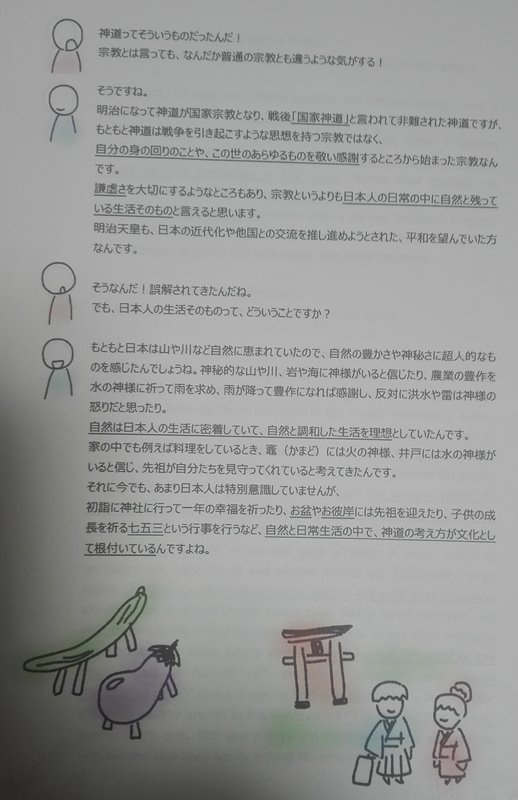 神道ってそういうものだったんだ！
宗教とは言っても、なんだか普通の宗教とも違うような気がする！
そうですね。
明治になって神道が国家宗教となり、戦後「国家神道」と言われて非難された神道ですが、
もともと神道は戦争を引き起こすような思想を持つ宗教ではなく、
自分の身の回りのことや、この世のあらゆるものを敬い感謝するところから始まった宗教なん
です。
謙虚さを大切にするようなところもあり、宗教というよりも日本人の日常の中に自然と残って
いる生活そのものと言えると思います。
明治天皇も、日本の近代化や他国との交流を推し進めようとされた、平和を望んでいた方
なんです。
そうなんだ！誤解されてきたんだね。
でも、日本人の生活そのものって、どういうことですか？
もともと日本は山や川など自然に恵まれていたので、自然の豊かさや神秘さに超人的なも
のを感じたんでしょうね。神秘的な山や川、岩や海に神様がいると信じたり、農業の豊作を
水の神様に祈って雨を求め、雨が降って豊作になれば感謝し、反対に洪水や雷は神様の
怒りだと思ったり。
自然は日本人の生活に密着していて、自然と調和した生活を理想としていたんです。
家の中でも例えば料理をしているとき、竈（かまど）には火の神様、井戸には水の神様が
いると信じ、先祖が自分たちを見守ってくれていると考えてきたんです。
それに今でも、あまり日本人は特別意識していませんが、
初詣に神社に行って一年の幸福を祈ったり、お盆やお彼岸には先祖を迎えたり、子供の成
長を祈る七五三という行事を行うなど、自然と日常生活の中で、神道の考え方が文化とし
て根付いているんですよね。